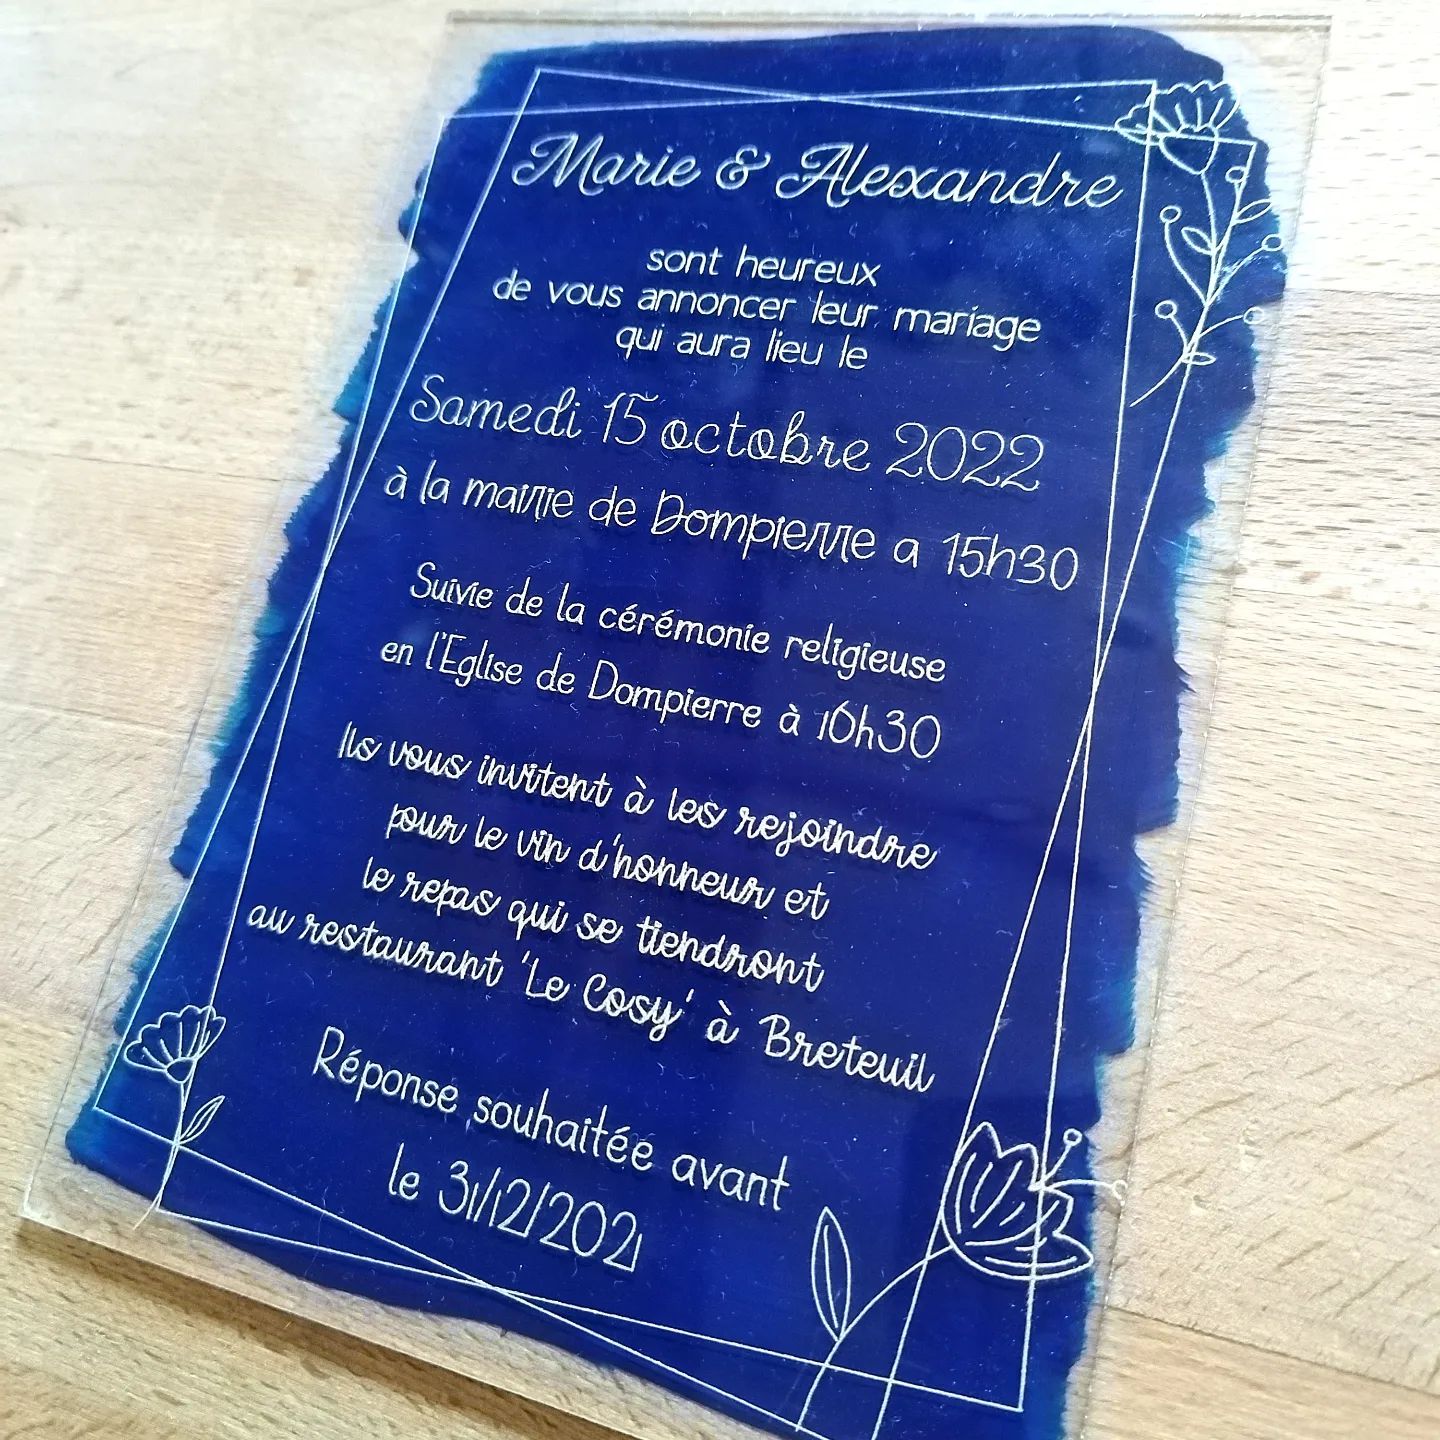 Marie & Alexandre
sont heureux
de vous annoncer leur mariage
qui aura lieu le
Samedi 15 octobre 2022
à la mairie de Dompierre a 15h30
Suivie de la cérémonie religieuse
en l'Eglise de Dompierre à 16h30
Ils vous invitent à les rejoindre
pour le vin d'honneur et
le repas qui se tiendront
au restaurant 'Le Cosy' à Breteuil
Réponse souhaitée avant
le 31/12/2021